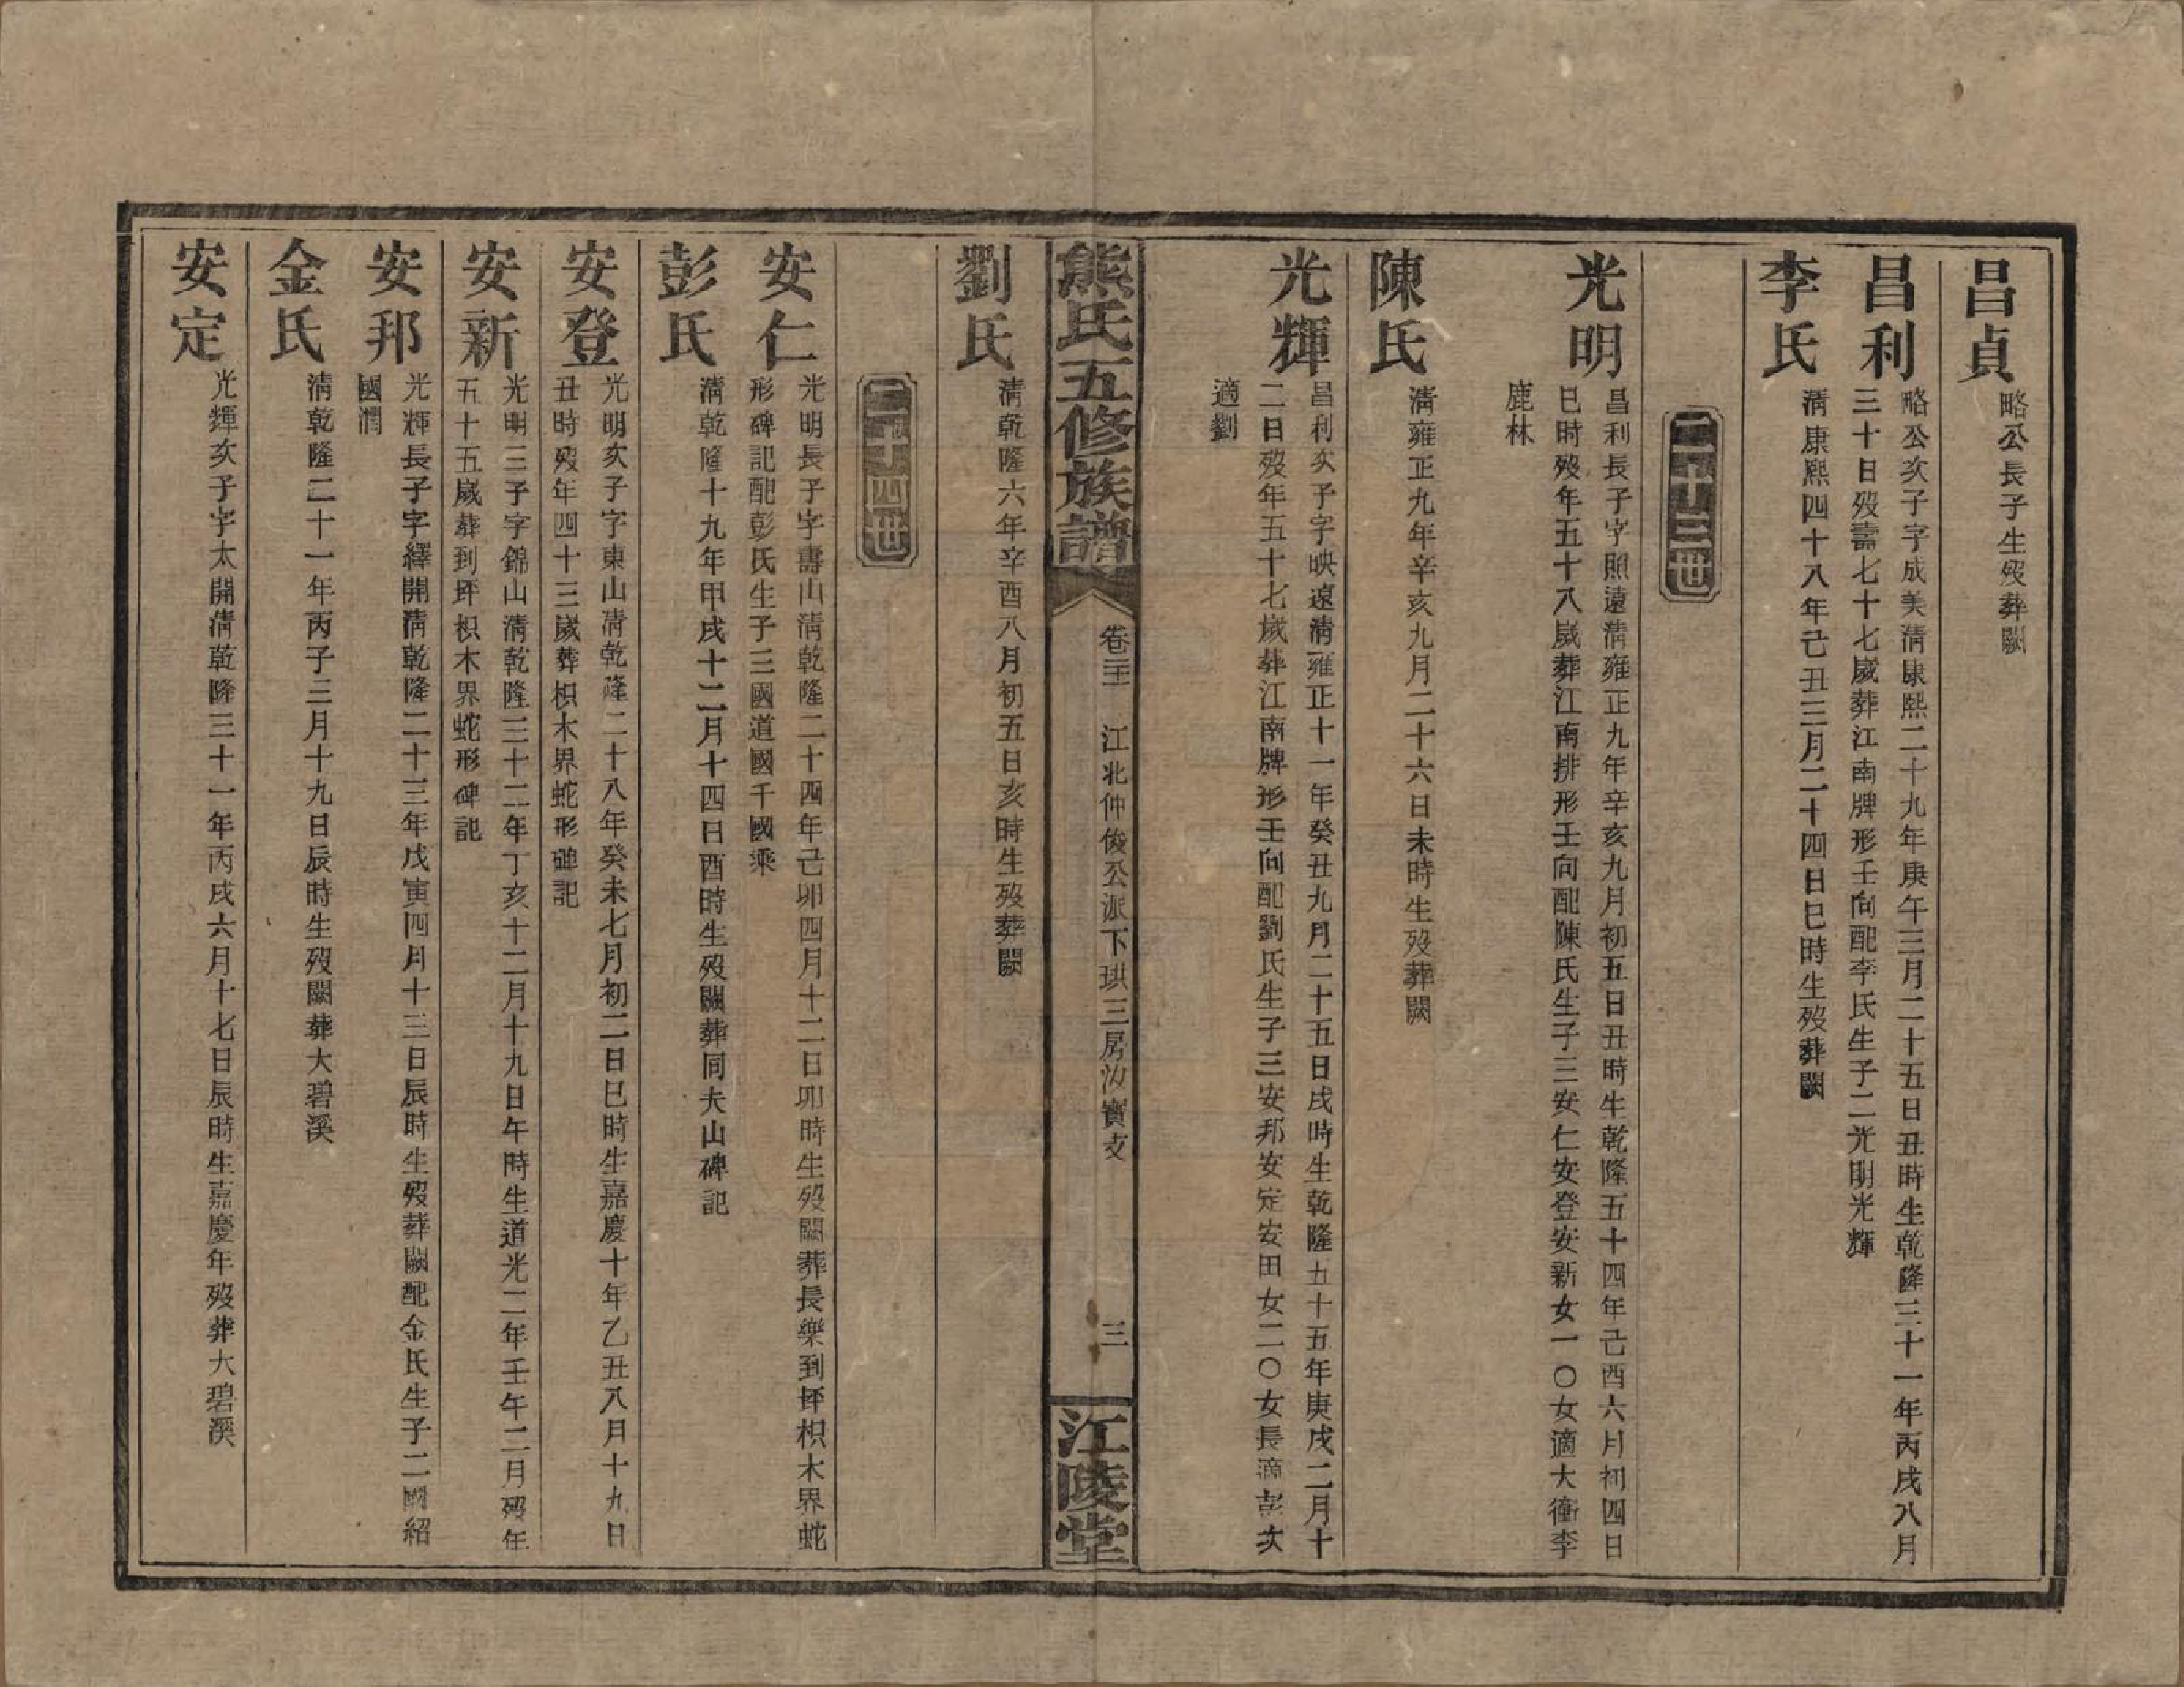 昌貞
略公長子生歿葬闕
昌利
略公次子字成美淸康熙二十九年庚午三月二十五日丑時生乾隆三十一年丙戌八月
三十日歿壽七十七歲葬江南牌形壬向配李氏生子二光明光輝
李氏
淸康熙四十八年己丑三月二十四日巳時生歿葬闕
二十三世
光明
昌利長子字照遠淸雍正九年辛亥九月初五日丑時生乾隆五十四年己酉六月初四日
巳時歿年五十八歲葬江南排形壬向配陳氏生子三安仁安登安新女一○女適大衝李
鹿林
陳氏
淸雍正九年辛亥九月二十六日未時生歿葬闕
光輝
昌利次子字映遠淸雍正十一年癸丑九月二十五日戌時生乾隆五十五年庚戌二月十
二日歿年五十七歲葬江南牌形壬向配劉氏生子三安邦安定安田女二○女長適彭次
適劉
熊氏五修族譜
卷三十二 江北仲俊公派下珙三房汝寶支
三
江陵堂
劉氏
淸乾隆六年辛酉八月初五日亥時生歿葬闕
二十四世
安仁
光明長子字壽山淸乾隆二十四年己卯四月十二日卯時生歿闕葬長樂到坪枳木界蛇
形碑記配彭氏生子三國道國千國乘
彭氏
淸乾隆十九年甲戌十二月十四日酉時生歿闕葬同夫山碑記
安登
光明次子字東山淸乾隆二十八年癸未七月初二日巳時生嘉慶十年乙丑八月十九日
丑時歿年四十三歲葬枳木界蛇形碑記
安新
光明三子字錦山淸乾隆三十二年丁亥十二月十九日午時生道光二年壬午二月歿年
五十五歲葬到坪枳木界蛇形碑記
安邦
光輝長子字繹開淸乾隆二十三年戊寅四月十三日辰時生歿葬闕配金氏生子二國紹
國潤
金氏
淸乾隆二十一年丙子三月十九日辰時生歿闕葬大碧溪
安定
光輝次子字太開淸乾隆三十一年丙戌六月十七日辰時生嘉慶年歿葬大碧溪